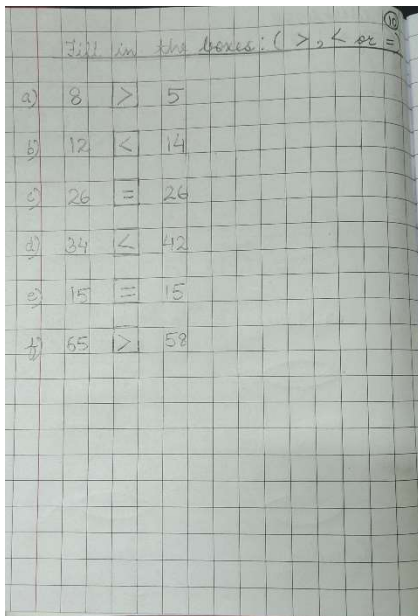 10
Fill in the boxes: ( >, < or = )
a) 8 > 5
b) 12 < 14
c) 26 = 26
d) 34 < 42
e) 15 = 15
f) 65 > 58